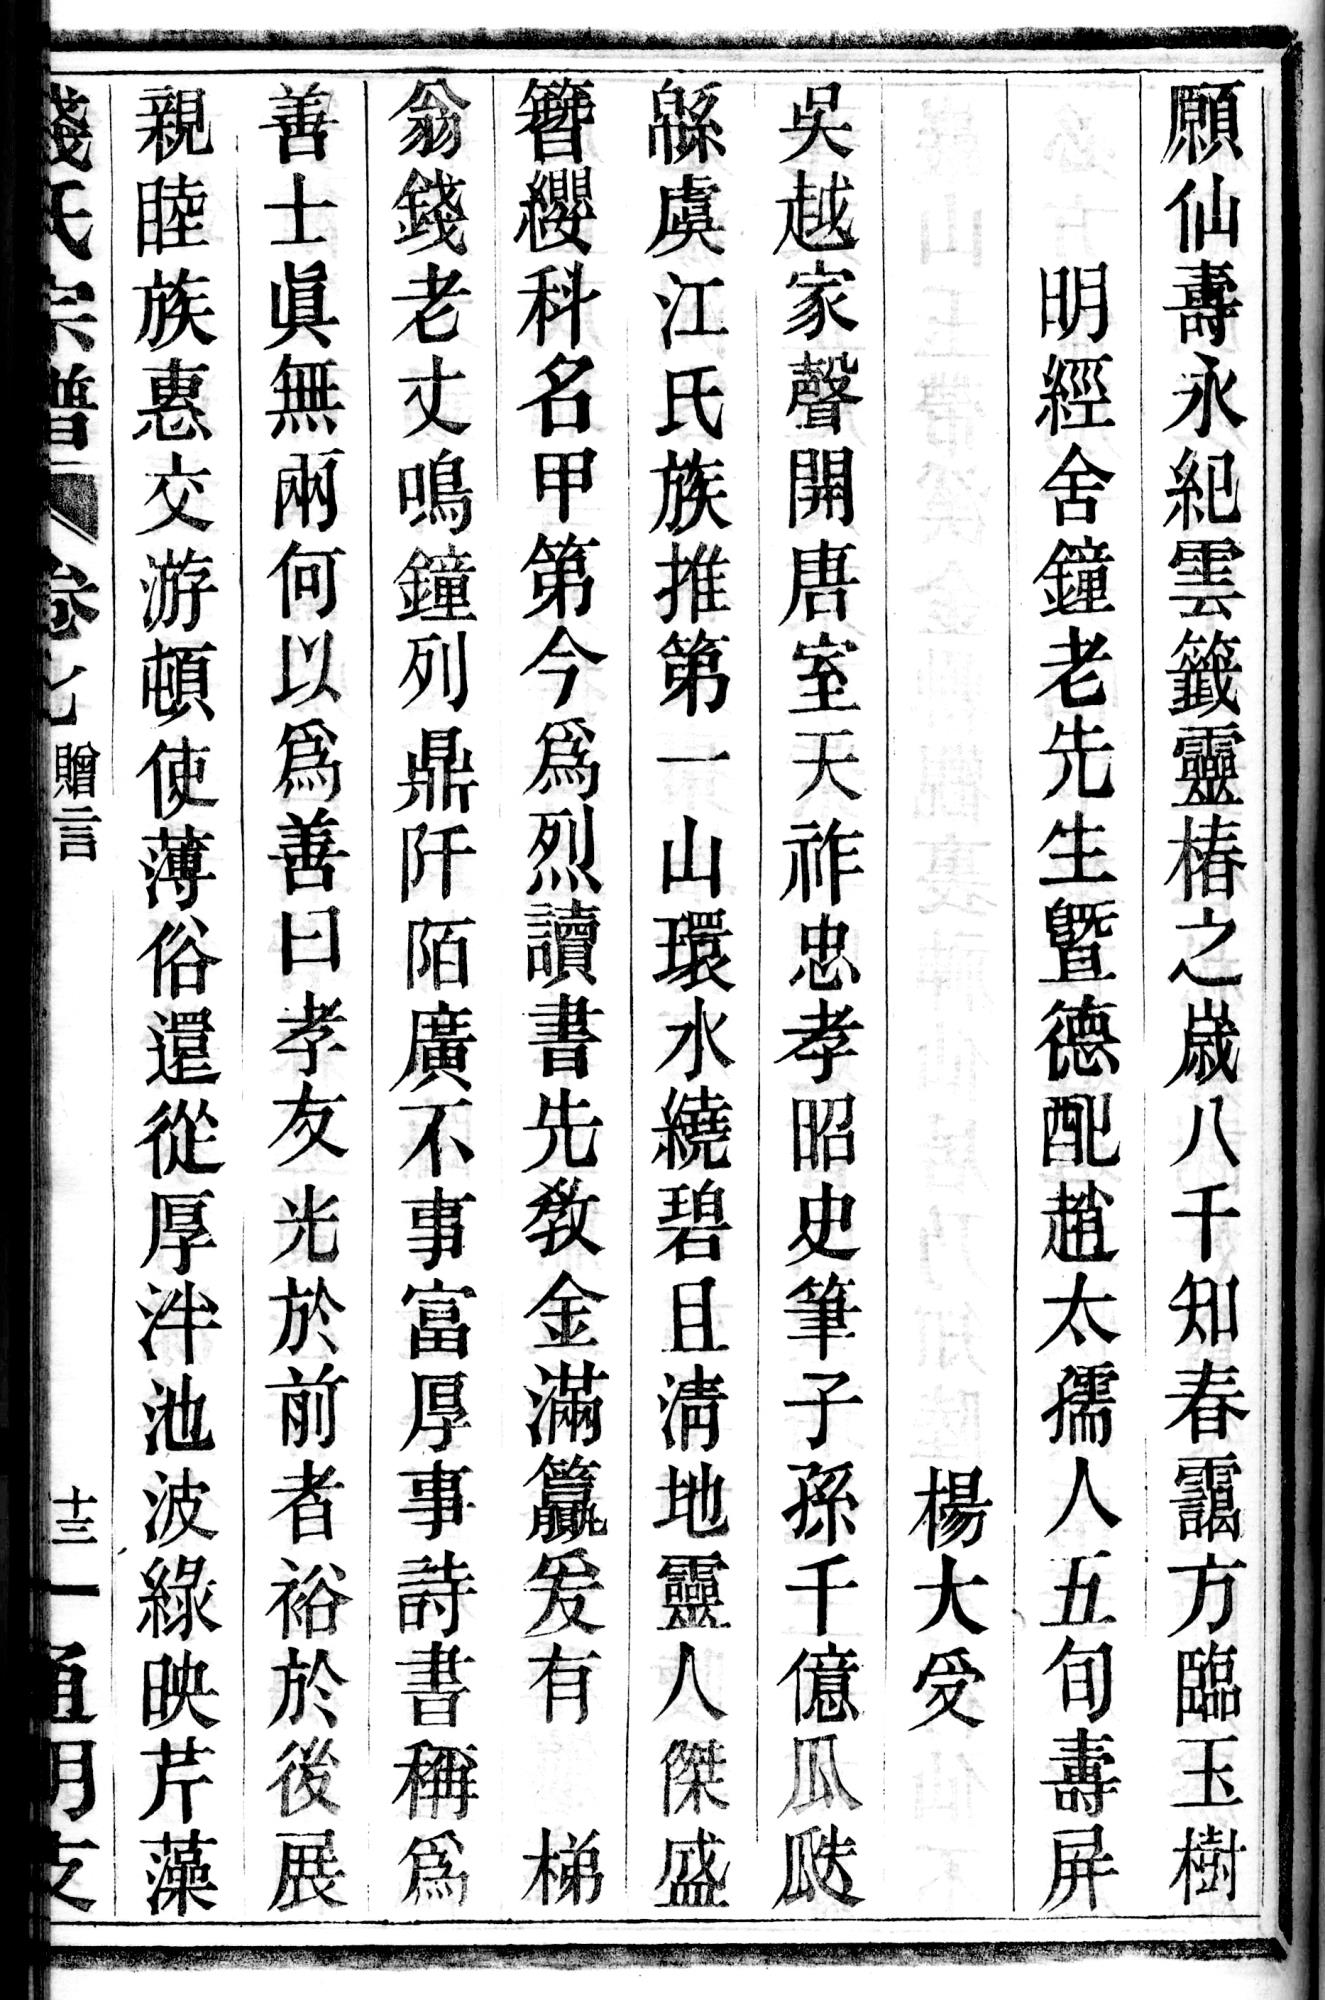 願仙壽永紀雲籤靈椿之歲八千知春靄方臨玉樹
明經舍鐘老先生暨德配趙太孺人五旬壽屏
楊大受
吳越家聲開唐室天祚忠孝昭史筆子孫千億瓜瓞
緜虞江氏族推第一山環水繞碧且清地靈人傑盛
簪纓科名甲第今爲烈讀書先教金滿籯爰有 梯
翁錢老丈鳴鐘列鼎阡陌廣不事富厚事詩書稱爲
善士眞無兩何以爲善曰孝友光於前者裕於後展
親睦族惠交游頓使薄俗還從厚泮池波綠映芹藻
錢氏宗譜 卷七 贈言 十三 一 通明支